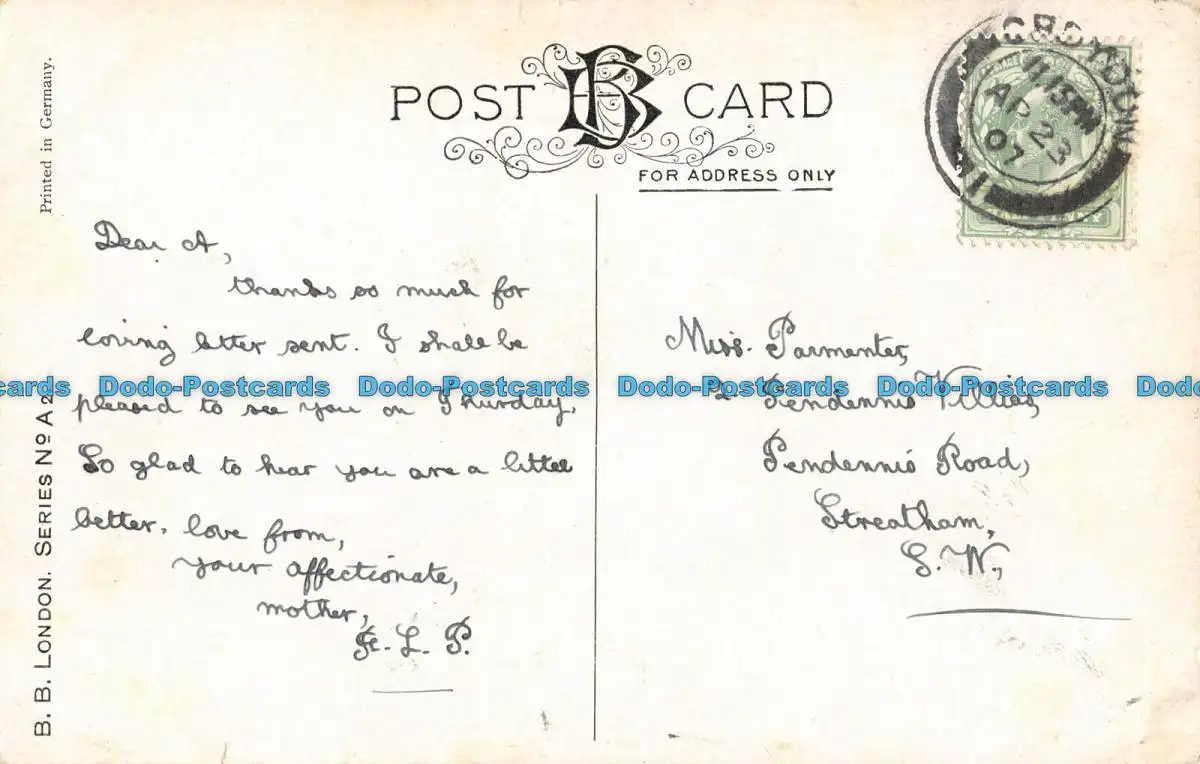 Printed in Germany.
POST BB CARD
FOR ADDRESS ONLY
CROYDON
11 15 PM
AP 23
07
Dear A,
thanks so much for
loving letter sent. I shall be
pleased to see you on Thurday.
So glad to hear you are a littel
better. love from,
your affectionate,
mother,
L. P.
Miss. Parmenter,
2 Pendennis Villias,
Pendennis Road,
Streatham,
S. W.,
B. B. LONDON. SERIES No A 2
cards Dodo-Postcards Dodo-Postcards Dodo-Postcards Dodo-Postcards Dodo